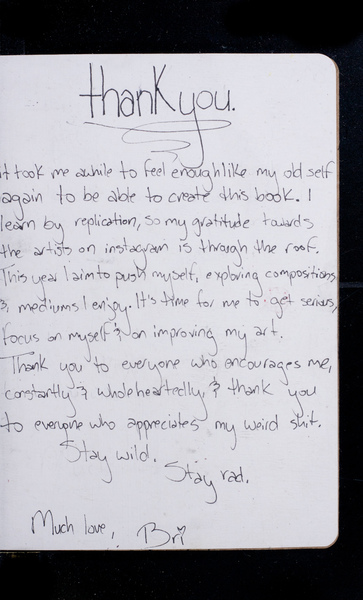 thank you.
it took me awhile to feel enough like my old self
again to be able to create this book. I
learn by replication, so my gratitude towards
the artists on instagram is through the roof.
This year I aim to push myself, exploring compositions
& mediums I enjoy. It's time for me to get serious,
focus on myself & on improving my art.
Thank you to everyone who encourages me,
constantly & wholeheartedly, & thank you
to everyone who appreciates my weird shit.
Stay wild.
Stay rad.
Much love,
Bri